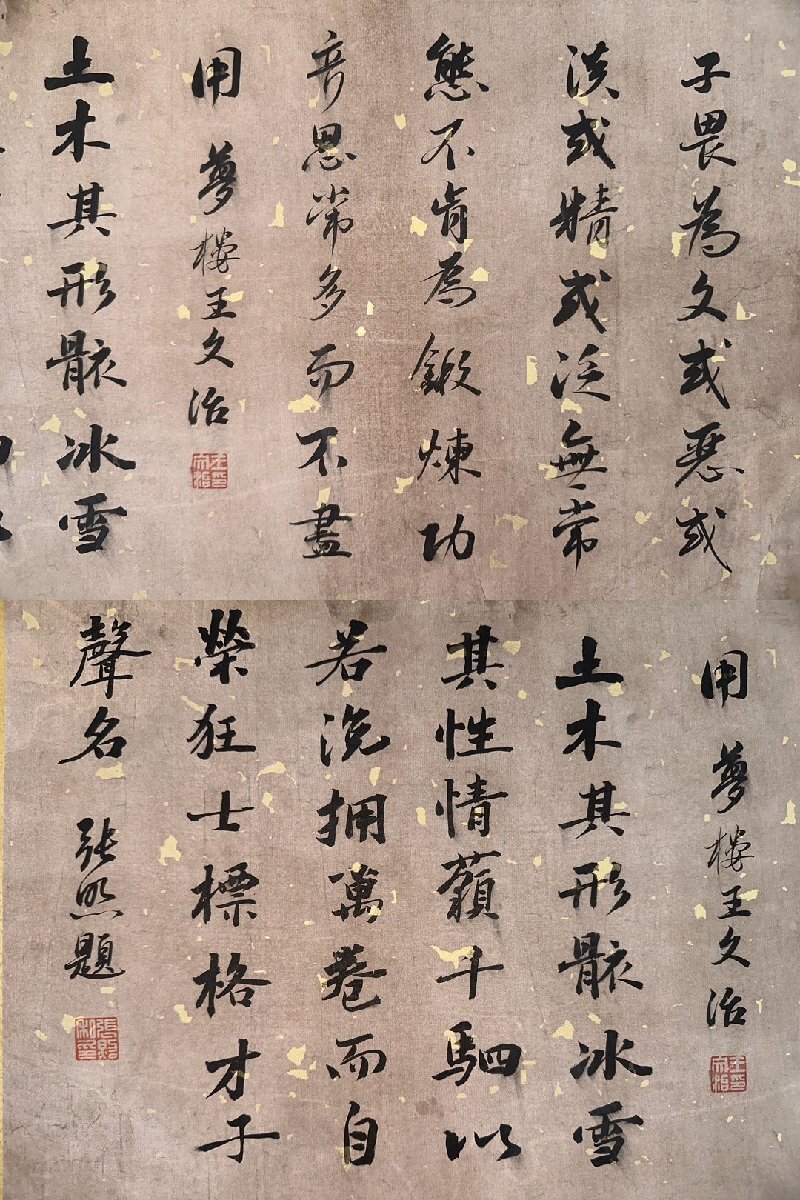 子畏為文或惡或
淡或精或泛無常
態不肯為鍛煉功
奇思常多而不盡
用 夢樓王文治
王印文治
土木其形骸冰雪
用 夢樓王文治
王印文治
土木其形骸冰雪
其性情藐千駟以
若浼拥萬卷而自
榮狂士標格才子
聲名 張照題